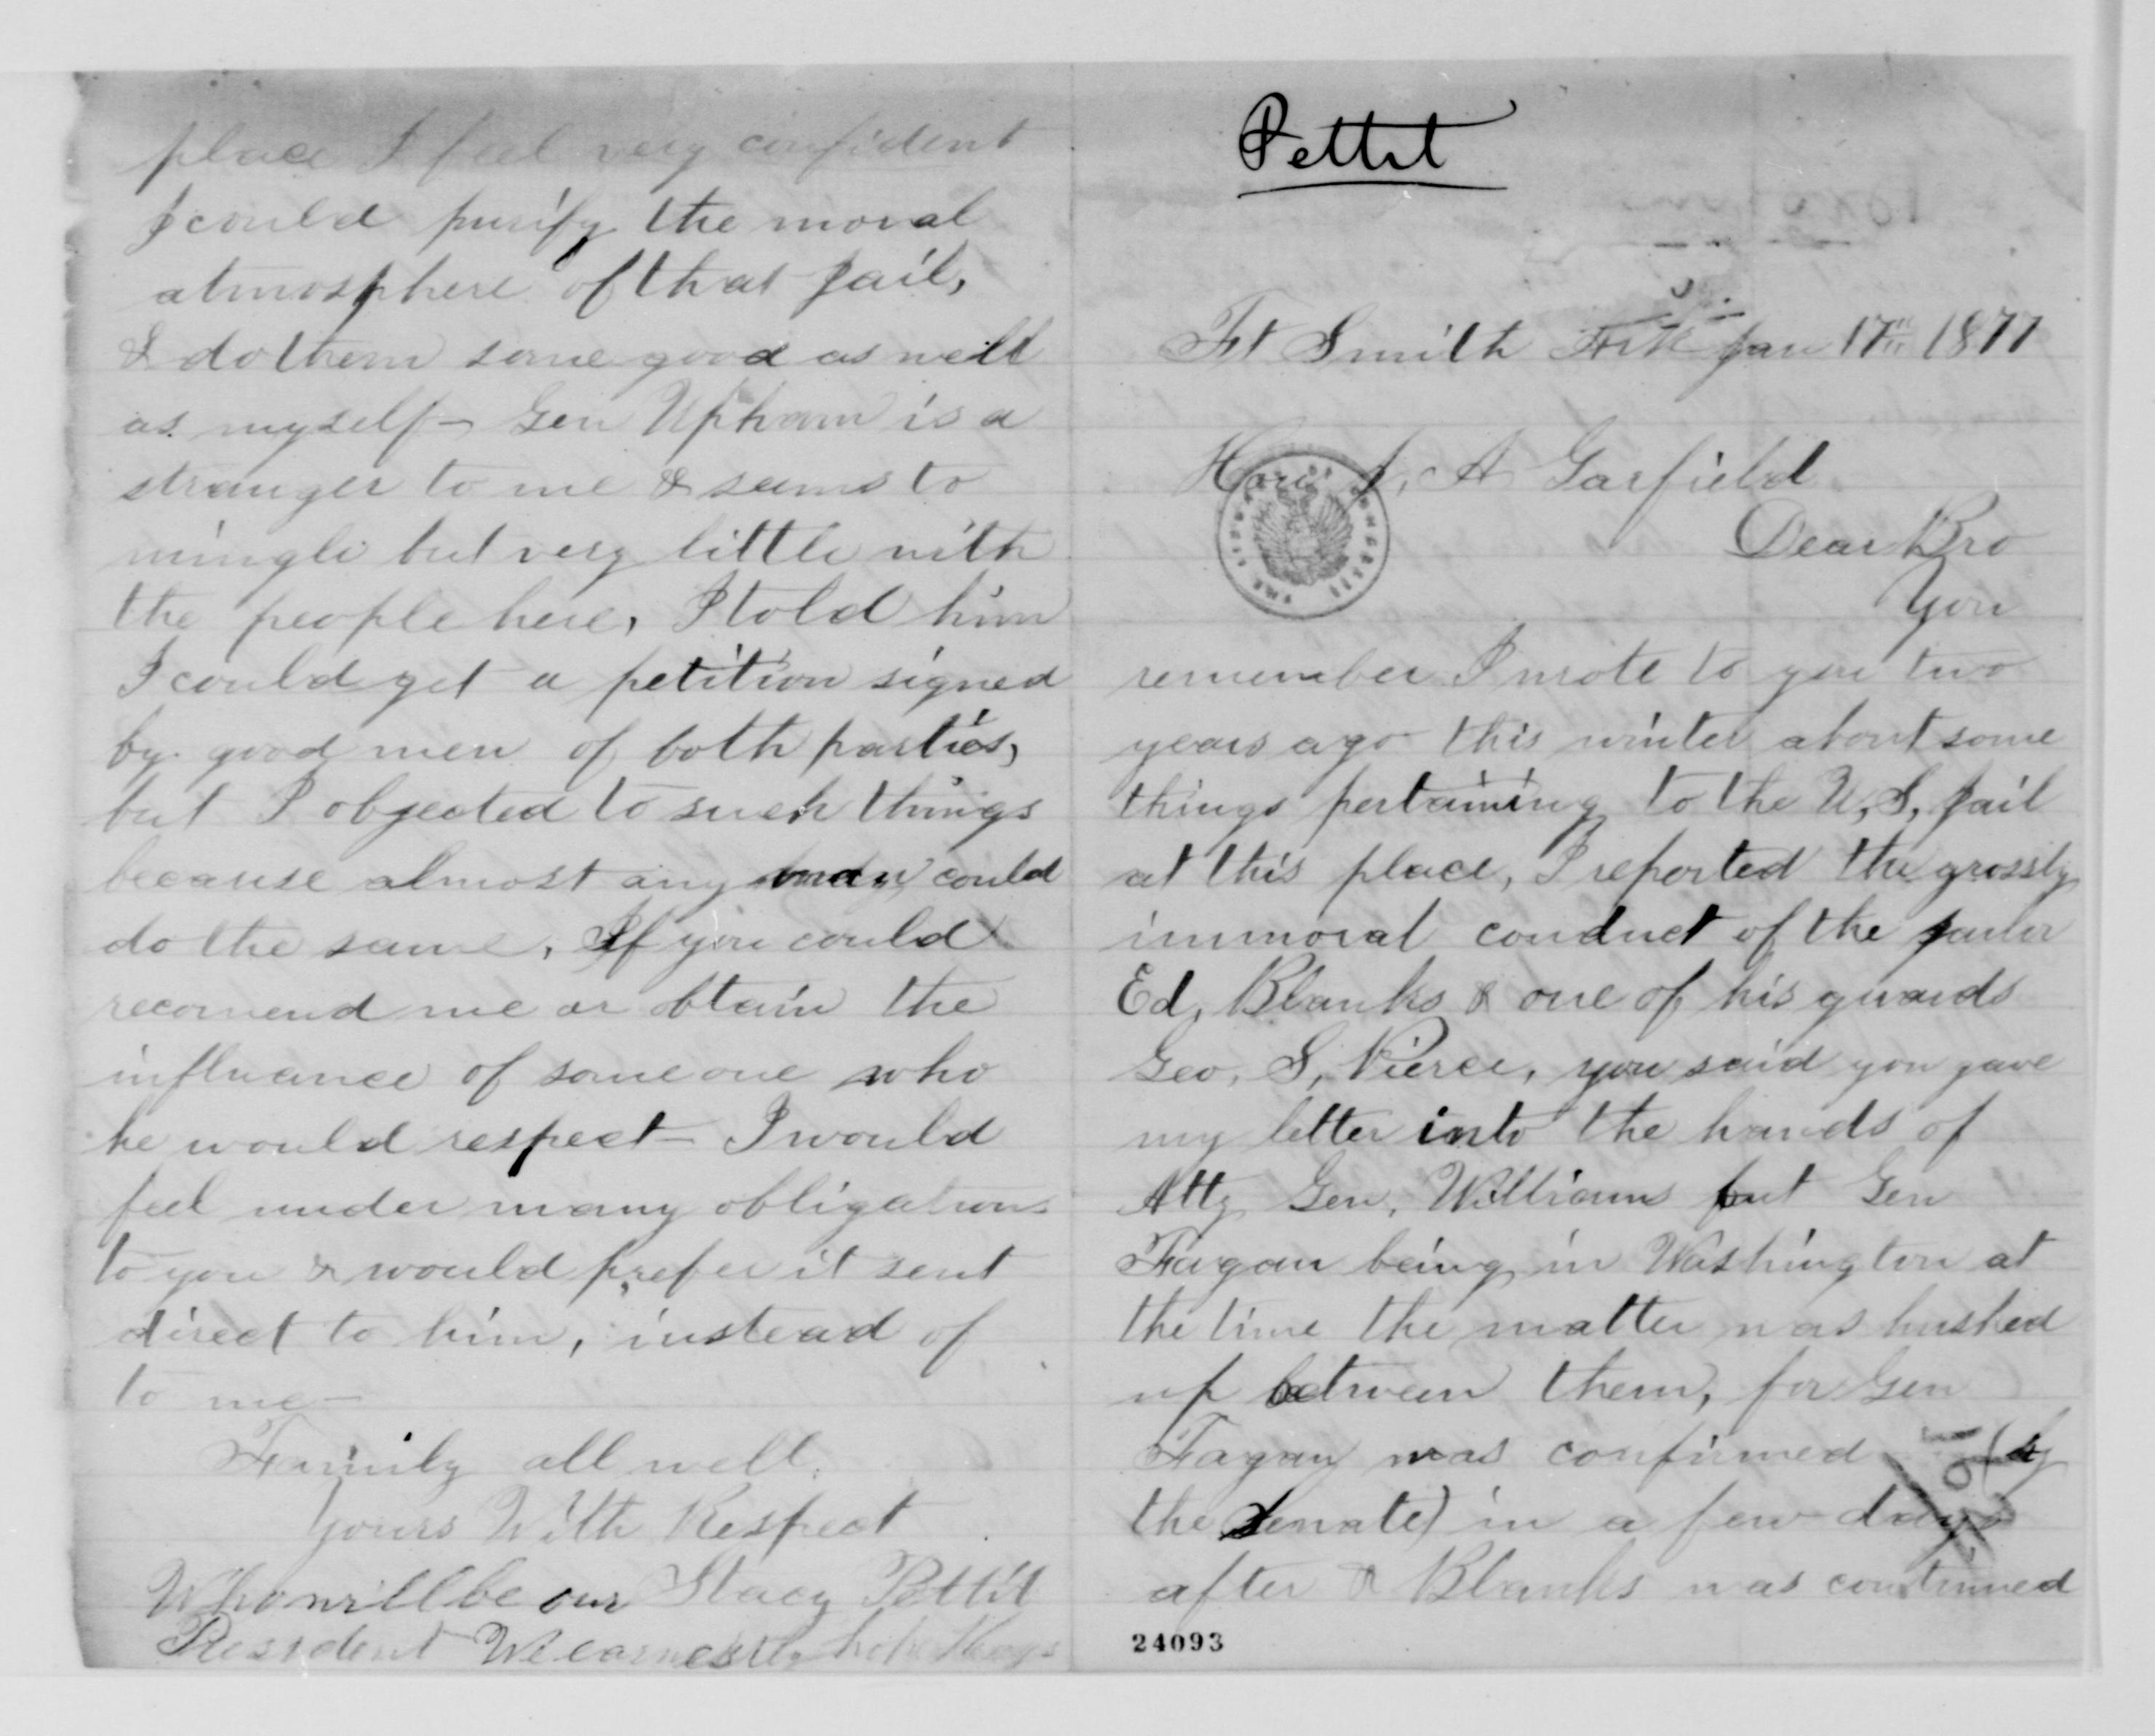 place I feel very confident
I could purify the moral
atmosphere of that Jail,
& do them some good as well
as myself – Gen Upham is a
stranger to me & seems to
mingle but very little with
the people here, I told him
I could get a petition signed
by good men of both parties,
but I objected to such things
because almost any man could
do the same, If you could
recomend me or obtain the
influance of some one who
he would respect – I would
feel under many obligations
to you & would prefer it sent
direct to him, instead of
to me –
Family all well.
Yours With Respect
Who will be our Stacy Pettit
President We earnestly hope Hays
Pettit
Ft Smith Ark Jan 17th 1877
Hon J. A Garfield
Dear Bro
You
remember I wrote to you two
years ago this winter about some
things pertaining to the U, S, Jail
at this place, I reported the grossly
immoral conduct of the Jailer
Ed, Blanks & one of his guards
Geo, S, Pierce, you said you gave
my letter into the hands of
Atty Gen, Williams but Gen
Fagan being in Washington at
the time the matter was hushed
up between them, for Gen
Fagan was confirmed (by
the Senate) in a few days
after & Blanks was continued
24093